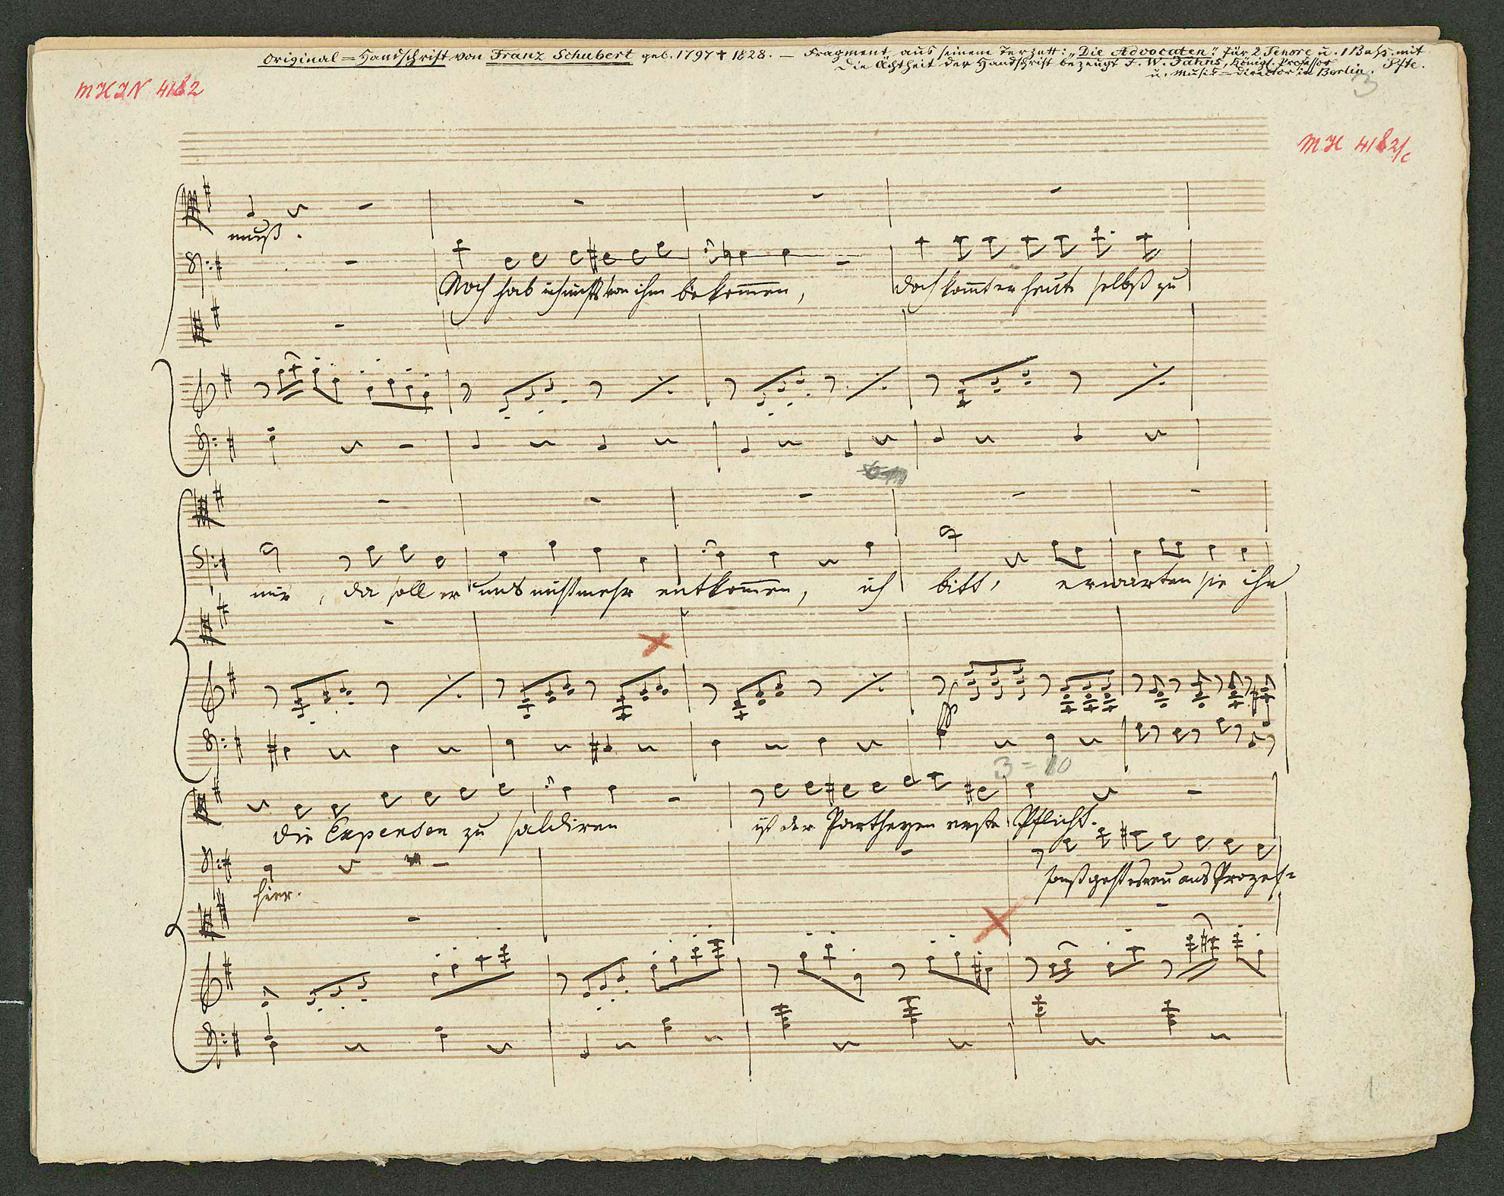 Original=Handschrift von Franz Schubert geb. 1797 † 1828. — Fragment aus seinem Terzett: „Die Advocaten“. für 2 Tenore u. 1 Bass. mit Pfte.
Die Ächtheit der Handschrift bezeugt F. W. Jähns, Königl. Professor
u. Musik=Director in Berlin.
3
MHIN 4182
MH 4182/c
muß.
Noch hab ich nichts von ihm bekommen,
doch kommt er heute selbst zu
mir, da soll er uns nicht mehr entkommen, ich bitt, erwarten sie ihn
3 = 10
die Expensen zu saldiren ist der Partheyen erste Pflicht.
hier.
sonst geht es neu ans Prozeß=
1